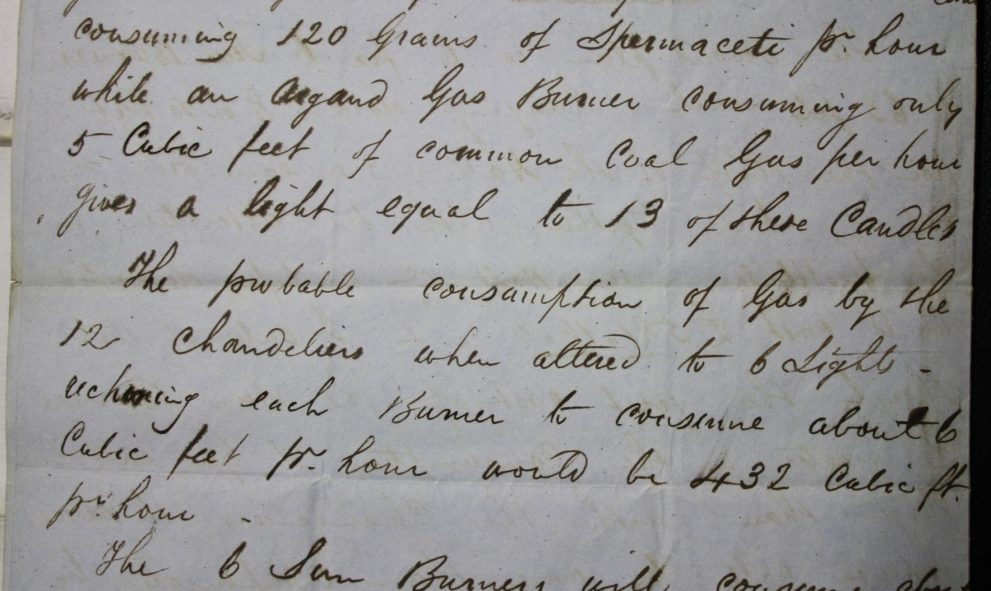 consuming 120 Grains of Spermaceti pr. hour
while an Argand Gas Burner consuming only
5 Cubic feet of common Coal Gas per hour
gives a light equal to 13 of these Candles
The probable consumption of Gas by the
12 Chandeliers when altered to 6 Light -
reckoning each Burner to consume about 6
Cubic feet pr. hour would be 432 Cubic ft.
pr. hour -
The 6 Sun Burners will consume about